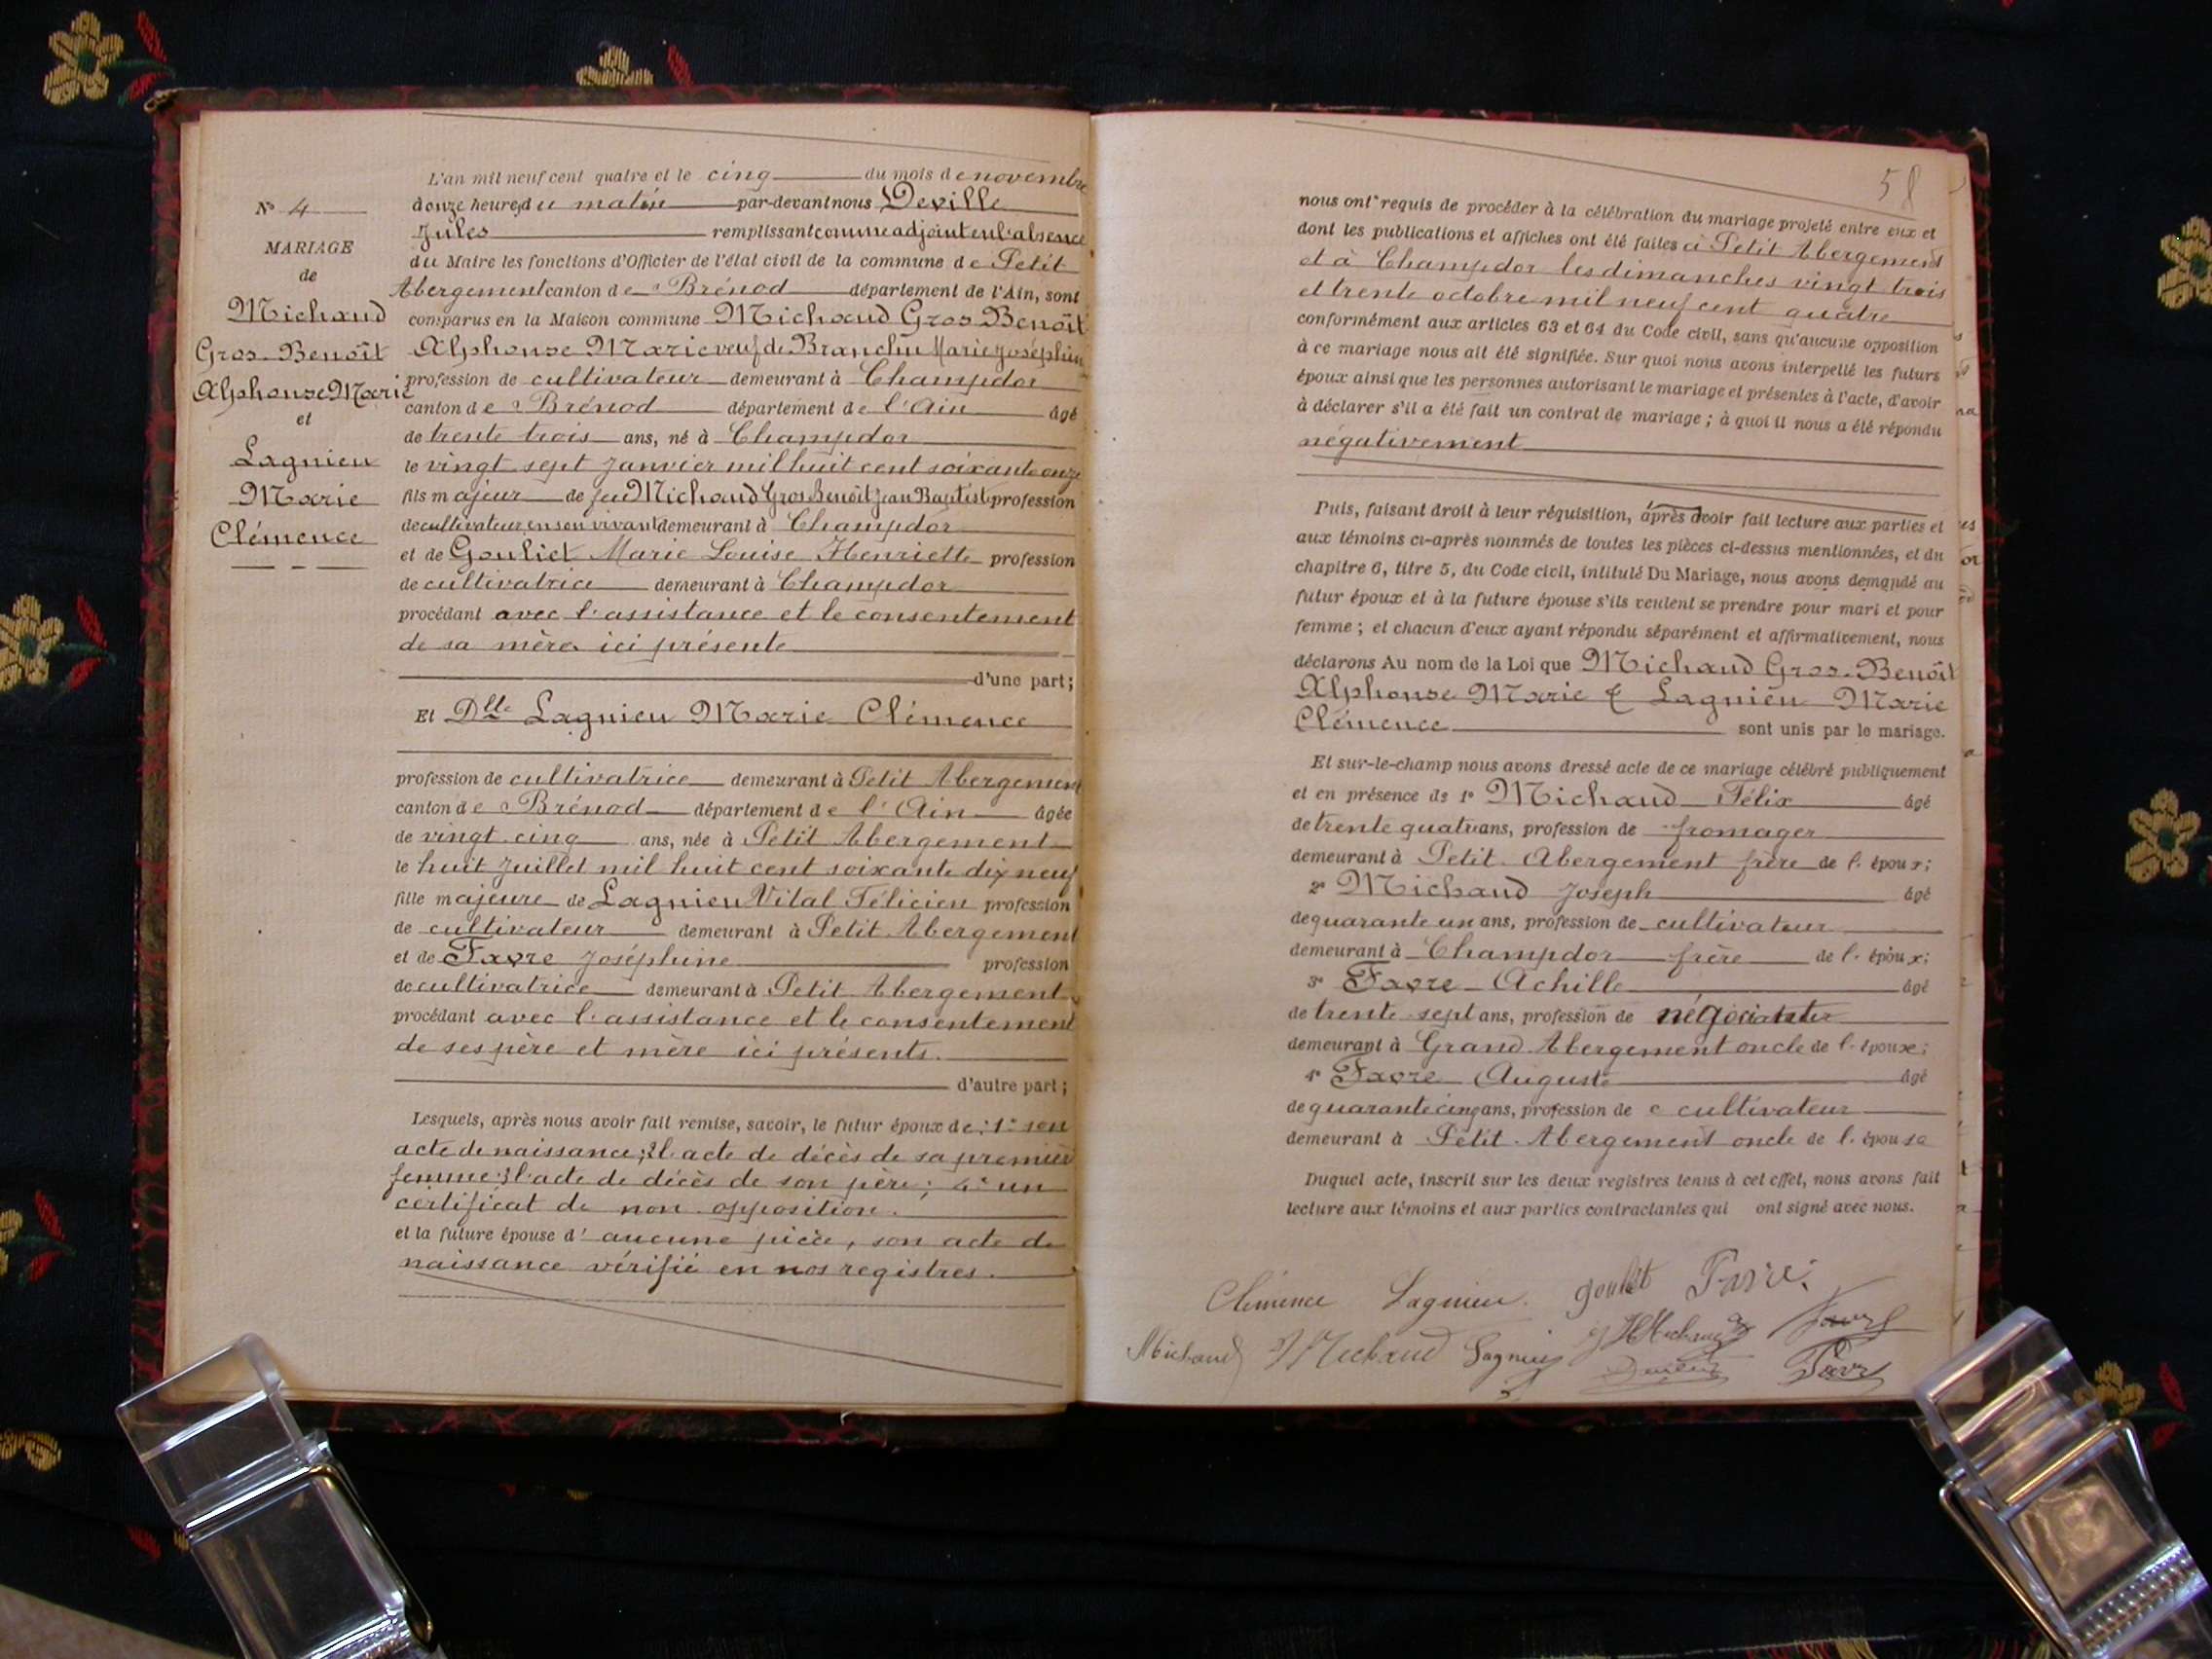 L'an mil neuf cent quatre et le cinq du mois de novembre
à onze heures du matin par-devant nous Deville
Jules remplissant comme adjoint en l'absence
du Maire les fonctions d'Officier de l'état civil de la commune de Petit
Abergement canton de Brénod département de l'Ain, sont
comparus en la Maison commune Michaud Gros Benoît
Alphonse Marie veuf de Branchu Marie Joséphine
profession de cultivateur demeurant à Champdor
canton de Brénod département de l'Ain âgé
de trente trois ans, né à Champdor
le vingt sept Janvier mil huit cent soixante onze
fils majeur de feu Michaud Gros Benoît Jean Baptiste profession
de cultivateur en son vivant demeurant à Champdor
et de Gouliet Marie Louise Henriette profession
de cultivatrice demeurant à Champdor
procédant avec l'assistance et le consentement
de sa mère ici présente
d'une part;
Et Dlle Lagnieu Marie Clémence
profession de cultivatrice demeurant à Petit Abergement
canton de Brénod département de l'Ain âgée
de vingt cinq ans, née à Petit Abergement
le huit Juillet mil huit cent soixante dix neuf
fille majeure de Lagnieu Vital Félicien profession
de cultivateur demeurant à Petit Abergement
et de Favre Joséphine profession
de cultivatrice demeurant à Petit Abergement
procédant avec l'assistance et le consentement
de ses père et mère ici présents.
d'autre part;
Lesquels, après nous avoir fait remise, savoir, le futur époux de: 1° son
acte de naissance; 2° l'acte de décès de sa première
femme; 3° l'acte de décès de son père; 4° un
certificat de non opposition.
et la future épouse d'aucune pièce, son acte de
naissance vérifié en nos registres.
N° 4
MARIAGE
de
Michaud
Gros-Benoît
Alphonse Marie
et
Lagnieu
Marie
Clémence
58
nous ont requis de procéder à la célébration du mariage projeté entre eux et
dont les publications et affiches ont été faites à Petit Abergement
et à Champdor les dimanches vingt trois
et trente octobre mil neuf cent quatre
conformément aux articles 63 et 64 du Code civil, sans qu'aucune opposition
à ce mariage nous ait été signifiée. Sur quoi nous avons interpellé les futurs
époux ainsi que les personnes autorisant le mariage et présentes à l'acte, d'avoir
à déclarer s'il a été fait un contrat de mariage; à quoi il nous a été répondu
négativement
Puis, faisant droit à leur réquisition, après avoir fait lecture aux parties et
aux témoins ci-après nommés de toutes les pièces ci-dessus mentionnées, et du
chapitre 6, titre 5, du Code civil, intitulé Du Mariage, nous avons demandé au
futur époux et à la future épouse s'ils veulent se prendre pour mari et pour
femme; et chacun d'eux ayant répondu séparément et affirmativement, nous
déclarons Au nom de la Loi que Michaud Gros-Benoît
Alphonse Marie & Lagnieu Marie
Clémence sont unis par le mariage.
Et sur-le-champ nous avons dressé acte de ce mariage célébré publiquement
et en présence de 1° Michaud Félix âgé
de trente quatre ans, profession de fromager
demeurant à Petit Abergement frère de l'époux;
2° Michaud Joseph âgé
de quarante un ans, profession de cultivateur
demeurant à Champdor frère de l'époux;
3° Favre Achille âgé
de trente sept ans, profession de
demeurant à Grand Abergement oncle de l'épouse;
4° Favre Auguste âgé
de quarante cinq ans, profession de cultivateur
demeurant à Petit Abergement oncle de l'épouse
Duquel acte, inscrit sur les deux registres tenus à cet effet, nous avons fait
lecture aux témoins et aux parties contractantes qui ont signé avec nous.
Clémence Lagnieu. Favre
Michaud Michaud Lagnieu Michaud Favre
Favre